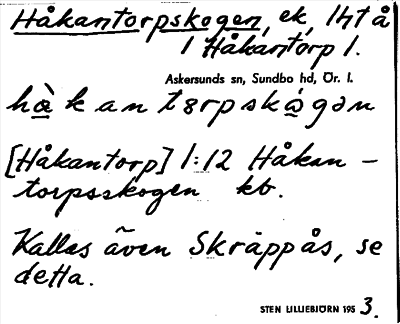 Håkantorpskogen, ek, 1ht å
1 Håkantorp 1.
Askersunds sn, Sundbo hd, Ör. l.
hàkantɵrpskɷ́gən
[Håkantorp] 1:12 Håkan-
torpsskogen kb.
Kallas även Skräppås, se
detta.
STEN LILLIEBJÖRN 1953.